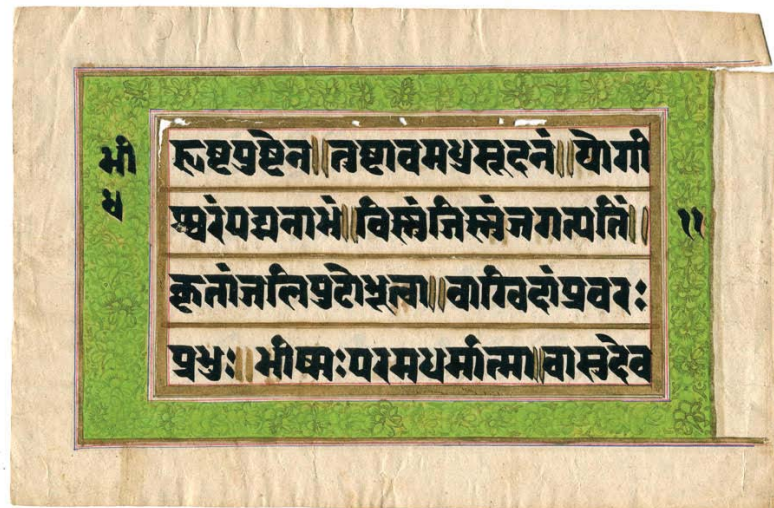 हृष्टपुष्टेन॥तुष्टावमधुसूदनं॥योगी
भी
ध
श्वरंपद्मनाभं॥विस्नुंजिस्नुंजगत्पतिं॥
११
कृतांजलिपुटोभूत्वा॥वाग्विदांप्रवरः
प्रभुः॥भीष्मःपरमधर्मात्मा॥वासुदेव